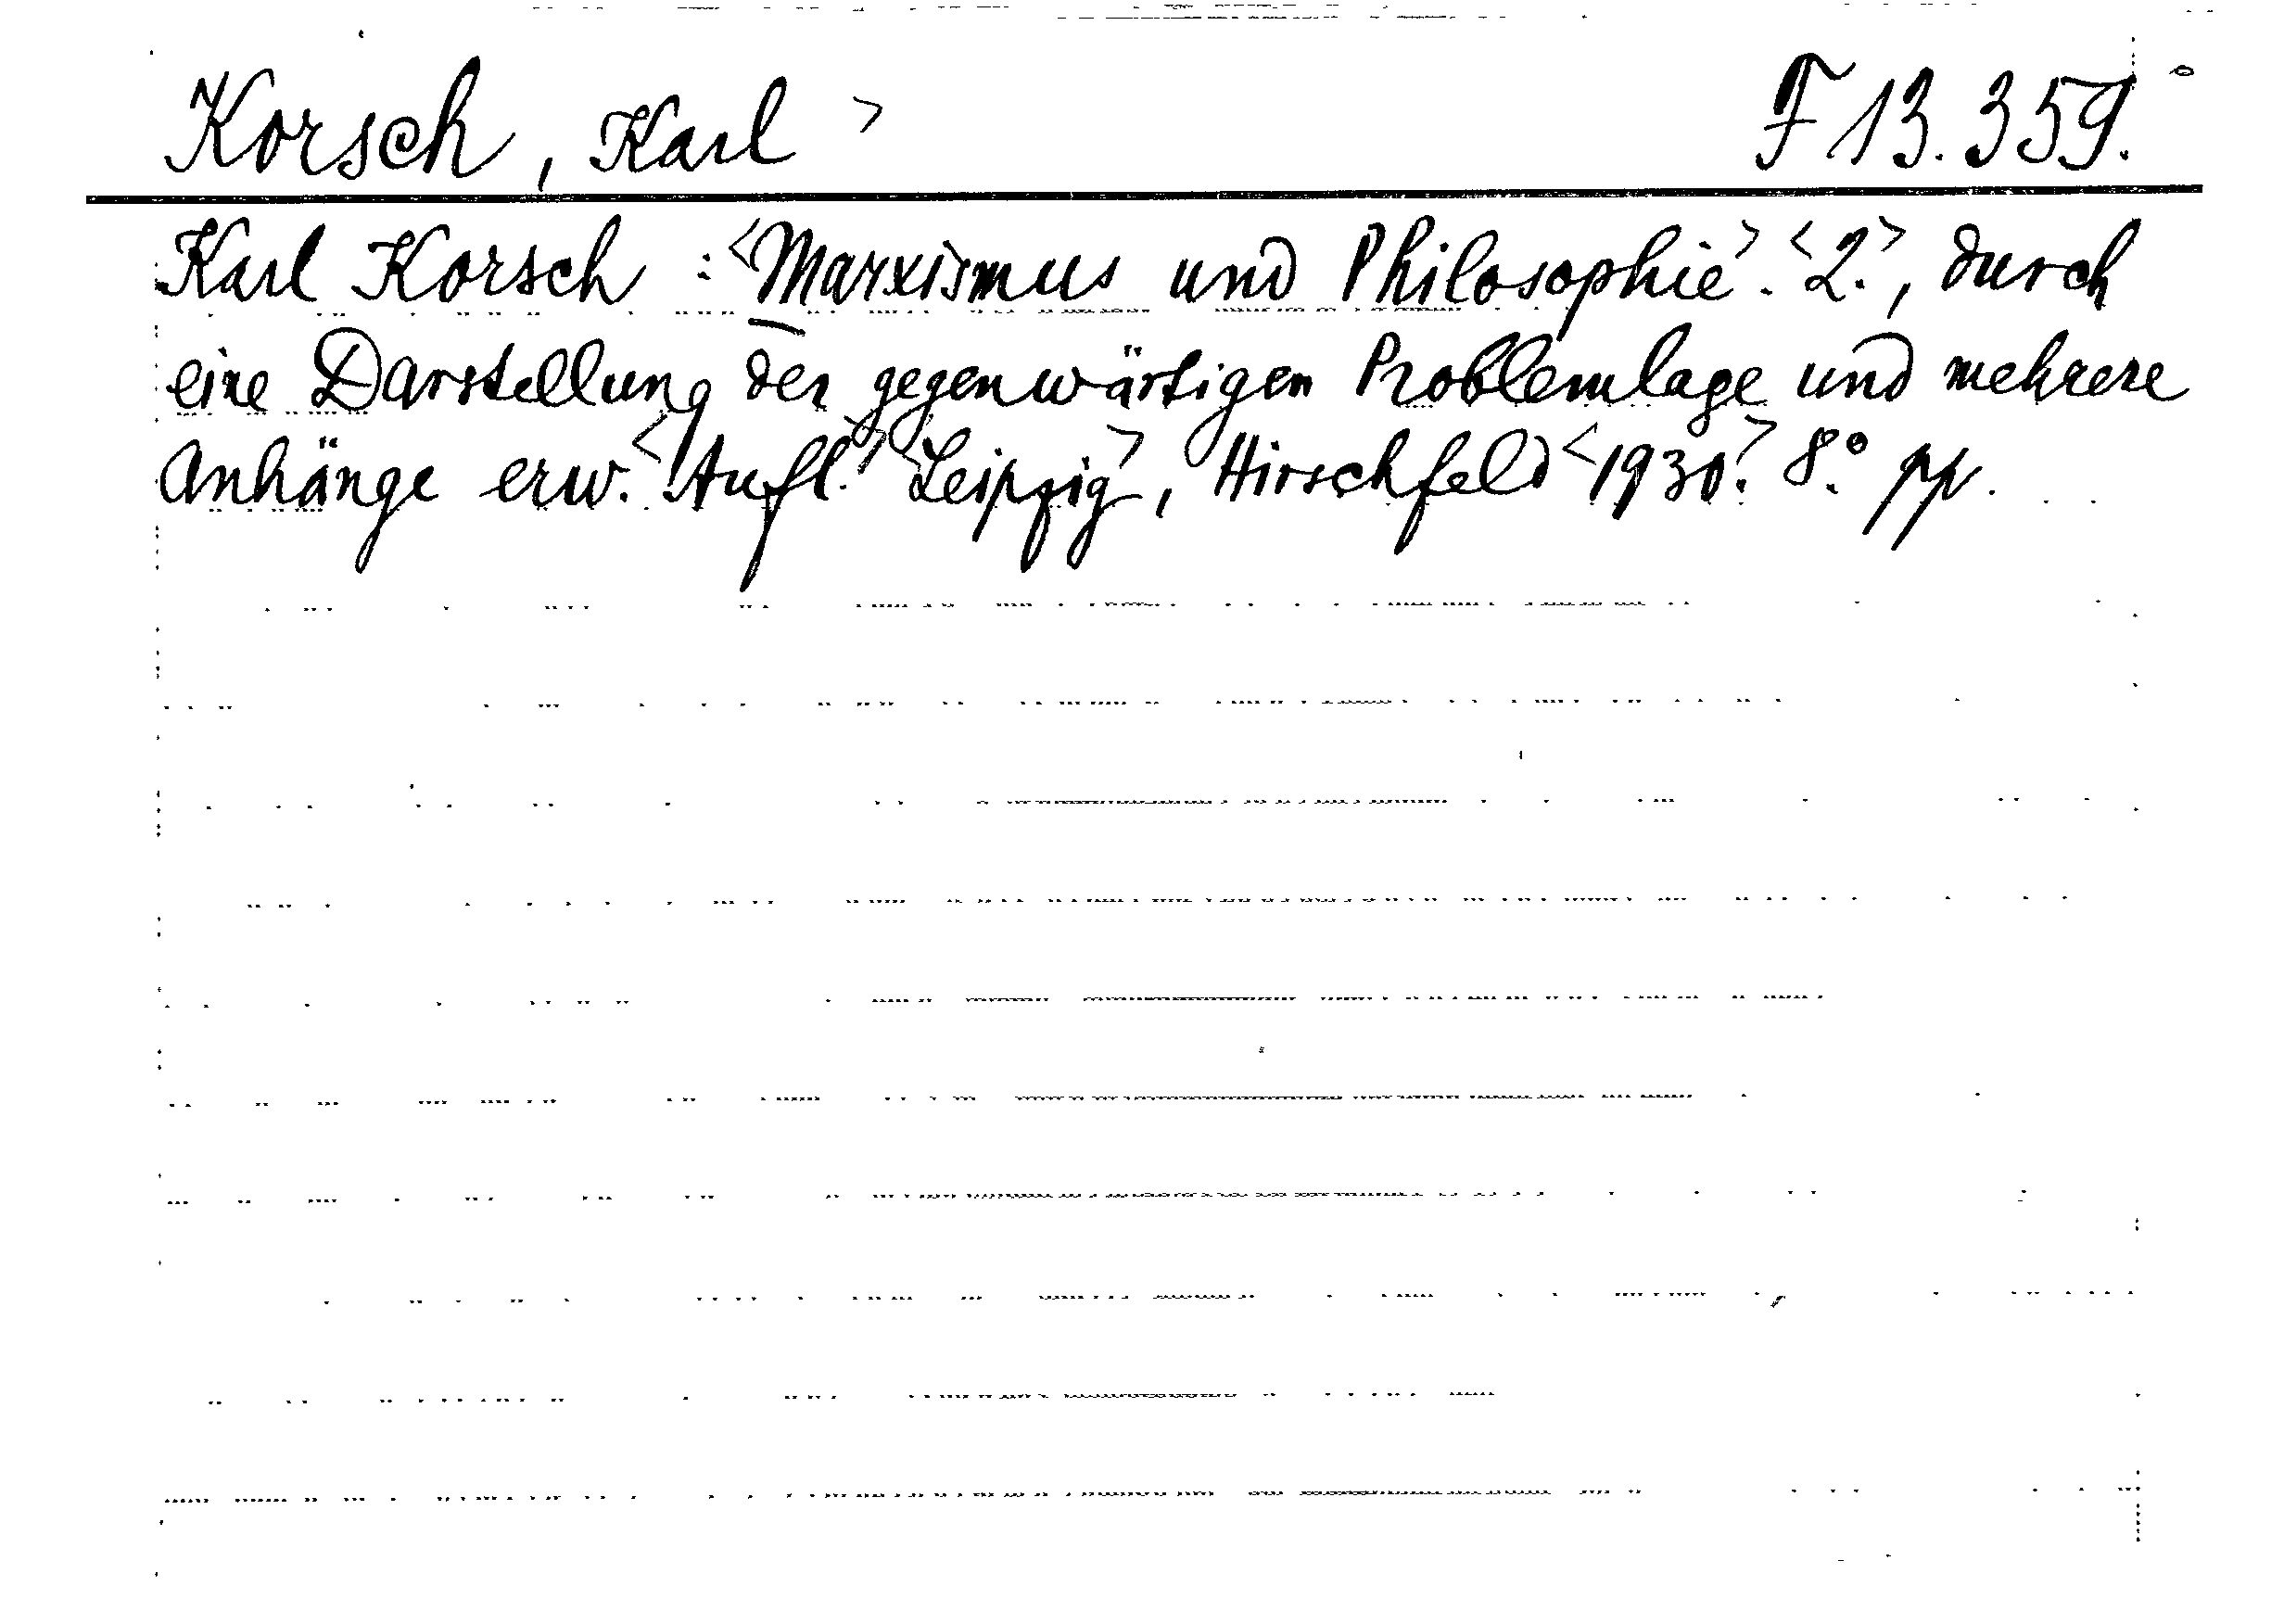 Korsch, Karl > F 13.359.
Karl Korsch : <Marxismus und Philosophie>. <2.>, durch
eine Darstellung der gegenwärtigen Problemlage und mehrere
Anhänge erw. <Aufl.> <Leipzig>, Hirschfeld <1930.> 8.° pp.